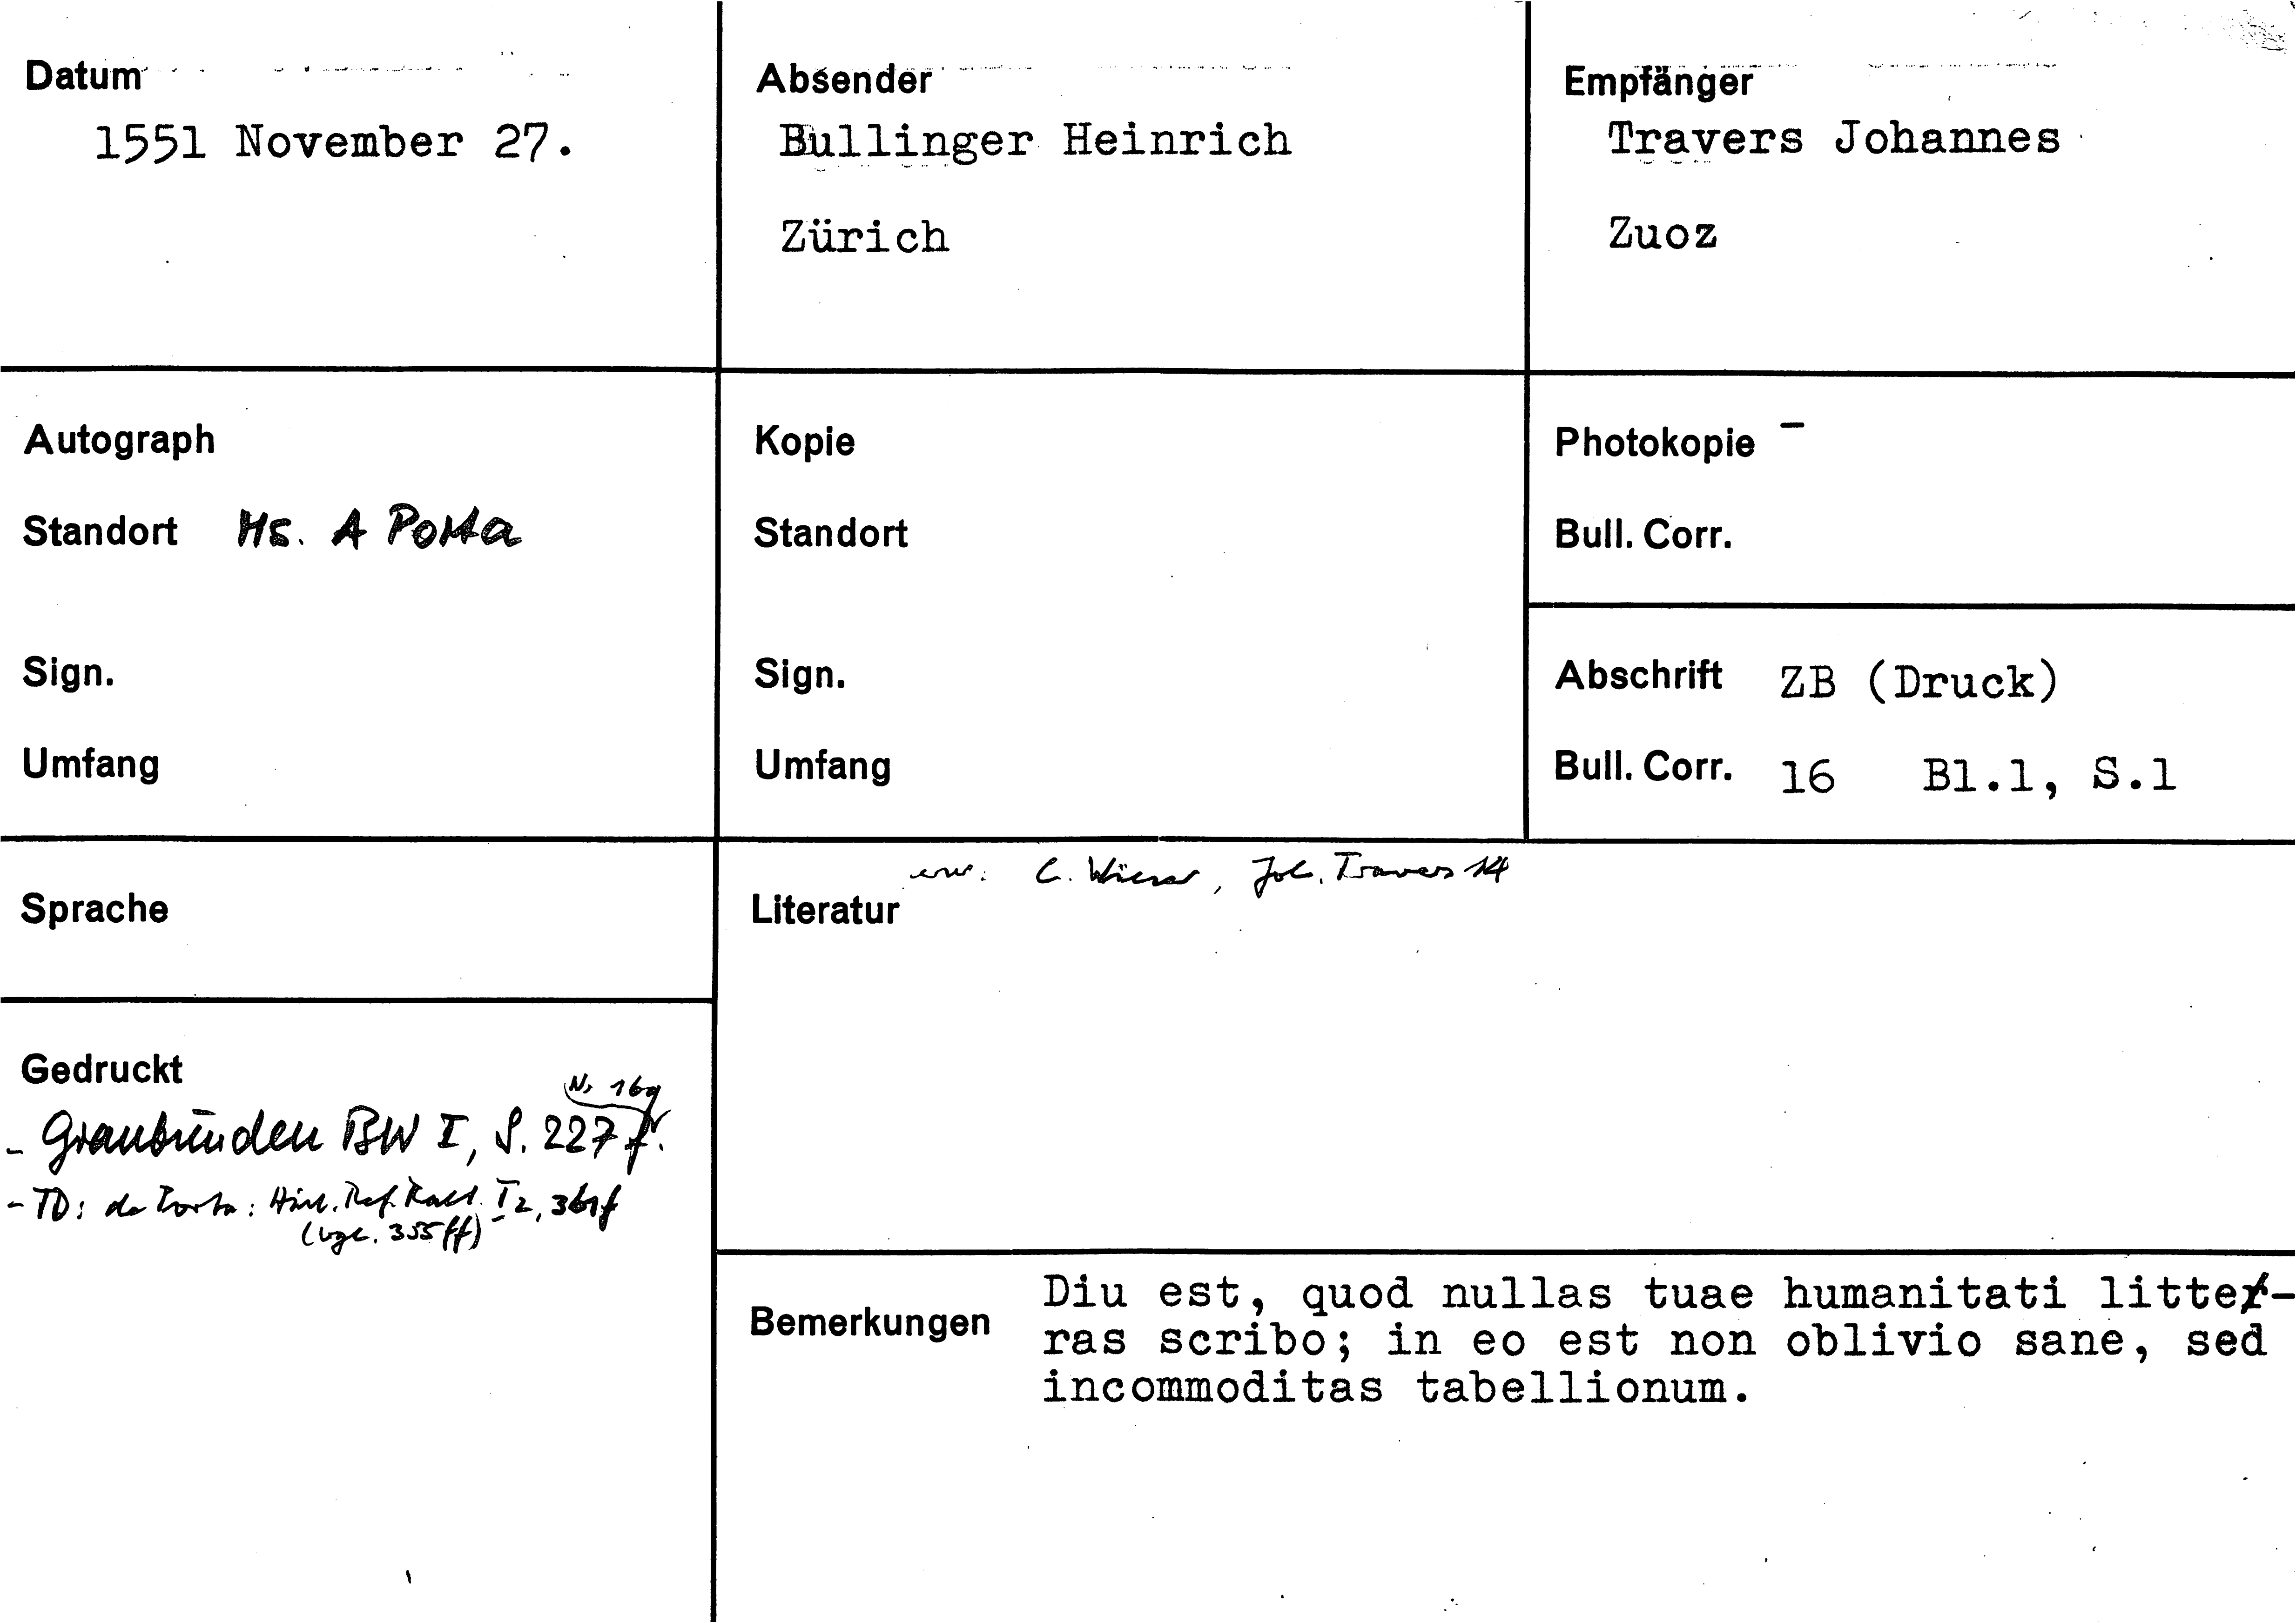 Datum
1551 November 27.
Absender
Bullinger Heinrich
Zürich
Empfänger
Travers Johannes
Zuoz
Autograph
Standort Hs. A Porta
Sign.
Umfang
Kopie
Standort
Sign.
Umfang
Photokopie -
Bull. Corr.
Abschrift ZB (Druck)
Bull. Corr. 16 Bl.1, S.1
Sprache
erw: C. Wieser, Joh. Travers 14
Literatur
Gedruckt
Nr 169
- Graubünden BW I, S. 227 f.
- TD: da Porta: Hist. Ref. Raet. I 2, 361f
(vgl. 355 ff)
Bemerkungen
Diu est, quod nullas tuae humanitati litte-
ras scribo; in eo est non oblivio sane, sed
incommoditas tabellionum.